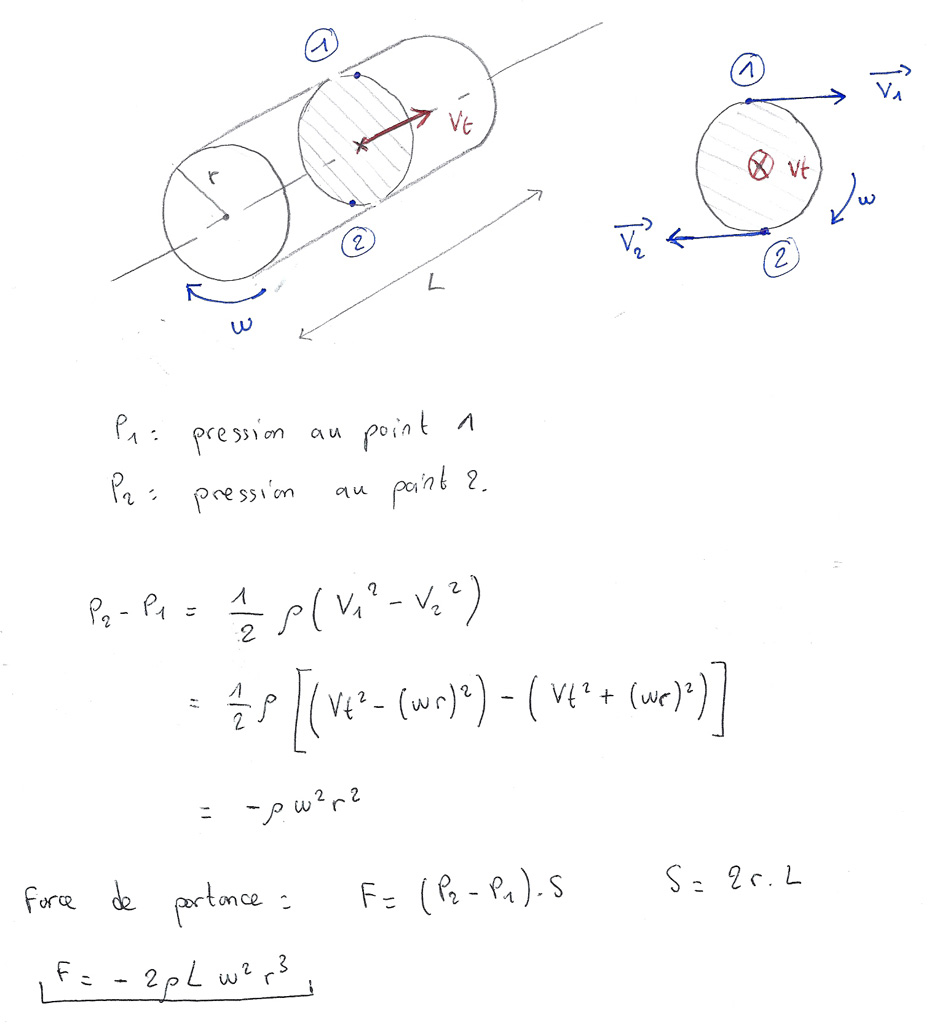 ①
r
Vt
②
L
w
①
V₁
Vt
w
V₂
②
P₁ : pression au point 1
P₂ : pression au point 2.
P₂ - P₁ = 1/2 ρ ( V₁² - V₂² )
= 1/2 ρ [ ( Vt² - (wr)² ) - ( Vt² + (wr)² ) ]
= - ρ w² r²
Force de portance : F = (P₂ - P₁) . S S = 2 r . L
F = - 2 ρ L w² r³